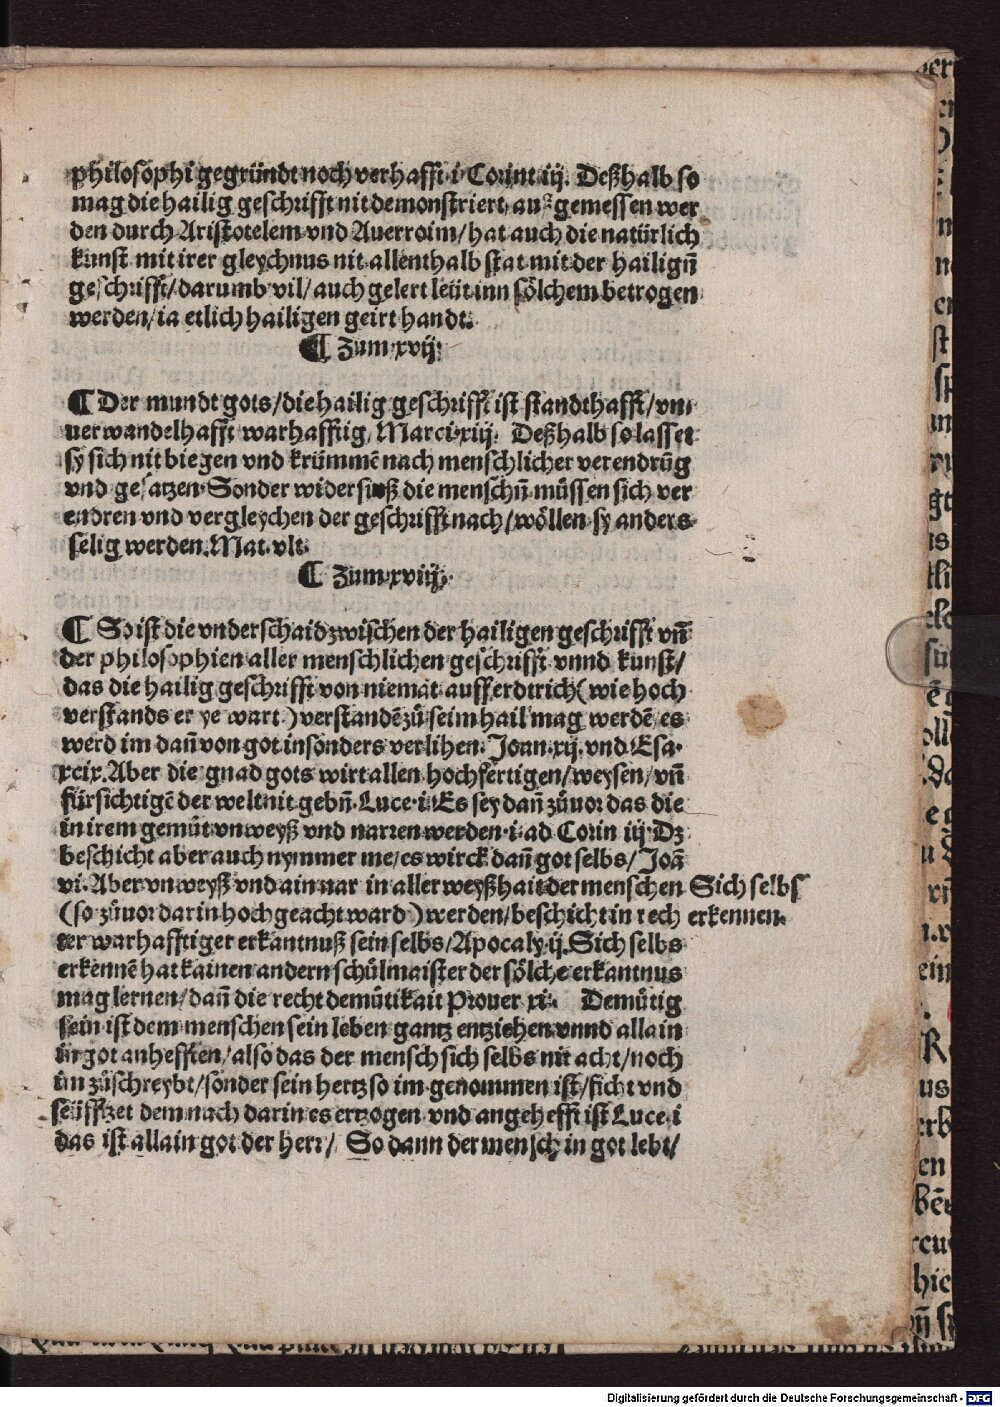 philosophi gegründt noch verhafft. i. Corint. iij. Deßhalb so
mag die hailig geschrifft nit demonstriert, auß gemessen wer
den durch Aristotelem vnd Auerroim/ hat auch die natürlich
kunst mit irer gleychnus nit allenthalb stat mit der hailign̄
geschrifft/ darumb vil/ auch gelert leüt inn sölchem betrogen
werden/ ia etlich hailigen geirt handt.
¶ Zum .xvij.
¶ Der mundt gots/ die hailig geschrifft ist standthafft/ vn
uerwandelhafft warhafftig, Marci. xiij. Deßhalb so lasset
sy sich nit biegen vnd krümmē nach menschlicher verendrūg
vnd gesatzen. Sonder die menschn̄ müssen sich ver
endren vnd vergleychen der geschrifft nach/ wöllen sy anders
selig werden. Mat. vlt.
¶ Zum xviij.
¶ So ist die vnderschaid zwischen der hailigen geschrifft vn̄
der philosophien aller menschlichen geschrifft vnnd kunst/
das die hailig geschrifft von niemāt auff erdtrich (wie hoch
verstands er ye wart) verstandē zů seim hail mag werdē/ es
werd im dan̄ von got insonders verlihen. Joan. xij. vnd Esa.
xcix. Aber die gnad gots wirt allen hochfertigen/ weysen/ vn̄
fürsichtigē der welt nit gebn̄. Luce. i. Es sey dan̄ zůuor das die
in irem gemüt vnweyß vnd narren werden. i. ad Corin iij. Dz
beschicht aber auch nymmer me/ es wirck dan̄ got selbs/ Joā
vi. Aber vnweyß vnd ain nar in aller weyßhait der menschen
(so zůuor darin hoch geacht ward) werden/ beschicht in rech
ter warhafftiger erkantnuß sein selbs/ Apocaly. ij. Sich selbs
erkennē hat kainen andern schůlmaister der sölche erkantnus
mag lernen/ dan̄ die recht demütikait Prouer xi. Demütig
sein ist dem menschen sein leben gantz entziehen vnnd allain
in got anhefften/ also das der mensch sich selbs nit acht/ noch
im zůschreybt/ sonder sein hertz so im genommen ist/ sicht vnd
seüfftzet dem nach darin es erzogen vnd angehefft ist Luce. i
das ist allain got der herr/ So dann der mensch in got lebt/
Sich selbs
erkennen.
Digitalisierung gefördert durch die Deutsche Forschungsgemeinschaft - DFG